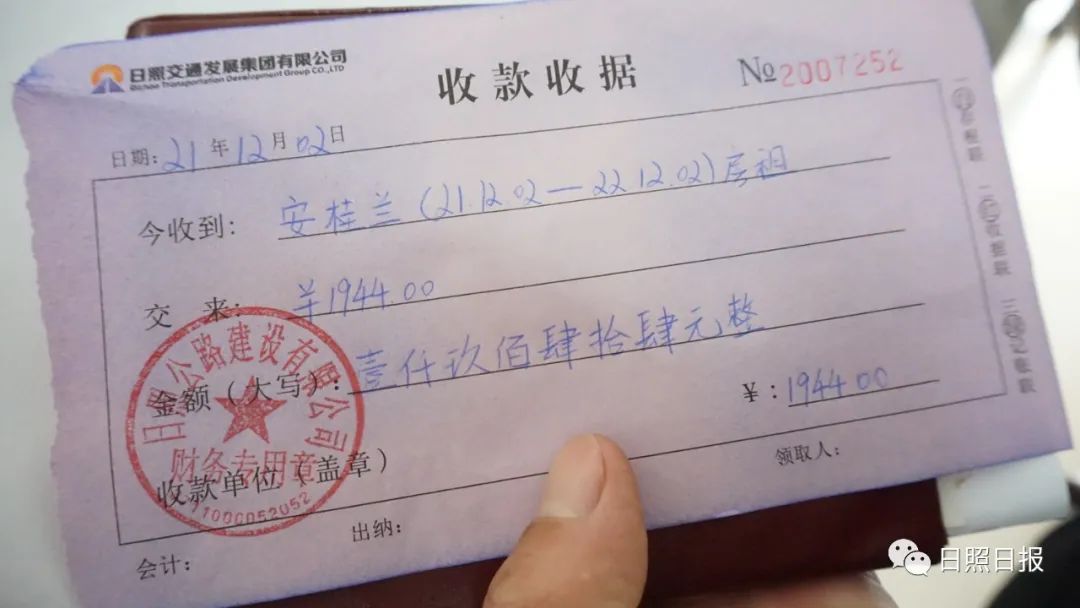 日照交通发展集团有限公司
Rizhao Transportation Development Group CO.,LTD
收款收据
№2007252
日期:21年12月02日
今收到:安桂兰(21.12.02—22.12.02)房租
交来:¥1944.00
金额(大写):壹仟玖佰肆拾肆元整
¥:1944.00
收款单位(盖章)
领取人:
会计:
出纳:
日照公路建设有限公司
财务专用章
存根联
二
收据联
三
记账联
日照日报